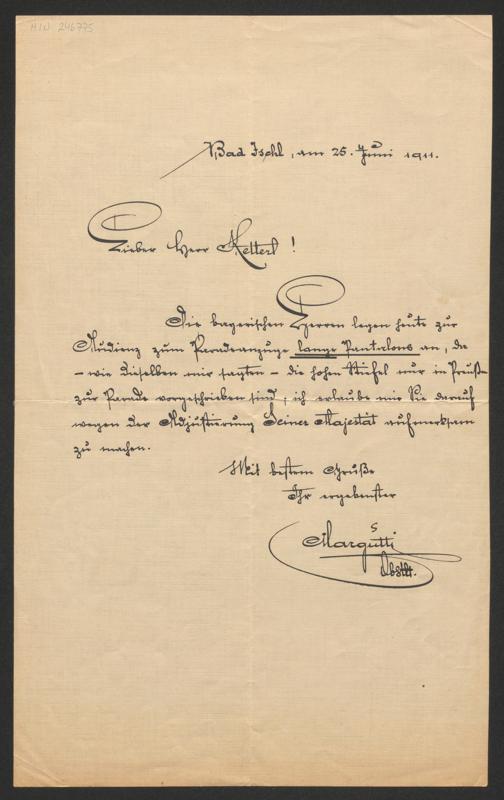 MIN 246775
Bad Ischl, am 25. Juni 1911.
Lieber Herr Ketterl!
Die bayerischen Herren legen heute zur
Audienz zum Paradeanzuge lange Pantalons an, da
– wie dieselben mir sagten – die hohen Stiefel nur in Preußen
zur Parade vorgeschrieben sind; ich erlaube mir Sie darauf
wegen der Adjustierung Seiner Majestät aufmerksam
zu machen.
Mit bestem Gruße
Ihr ergebenster
Margutti
Obstlt.